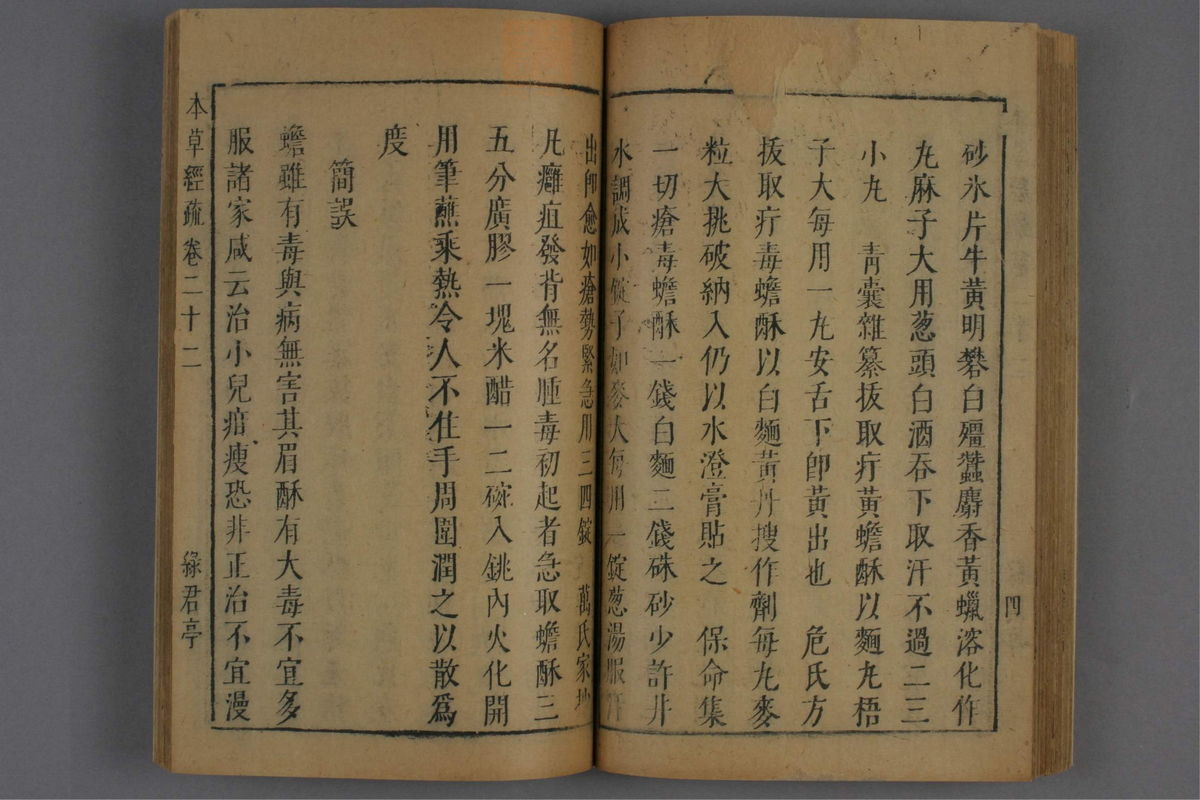 砂氷片牛黃明礬白殭蠶麝香黃蠟溶化作
丸麻子大用葱頭白酒吞下取汗不過二三
小丸　青囊雜纂拔取疔黃蟾酥以麵丸梧
子大每用一丸安舌下卽黃出也　危氏方
拔取疔毒蟾酥以白麵黃丹搜作劑每丸麥
粒大挑破納入仍以水澄膏貼之　保命集
一切瘡毒蟾酥一錢白麵二錢硃砂少許井
水調成小錠子如麥大每用一錠葱湯服汗
出卽愈如瘡勢緊急用三四錠　萬氏家抄
凡癰疽發背無名腫毒初起者急取蟾酥三
五分廣膠一塊米醋一二碗入銚內火化開
用筆蘸乘熱令人不住手周圍潤之以散爲
度
簡誤
蟾雖有毒與病無害其眉酥有大毒不宜多
服諸家咸云治小兒疳瘦恐非正治不宜漫
本草經疏 卷二十二 綠君亭
四